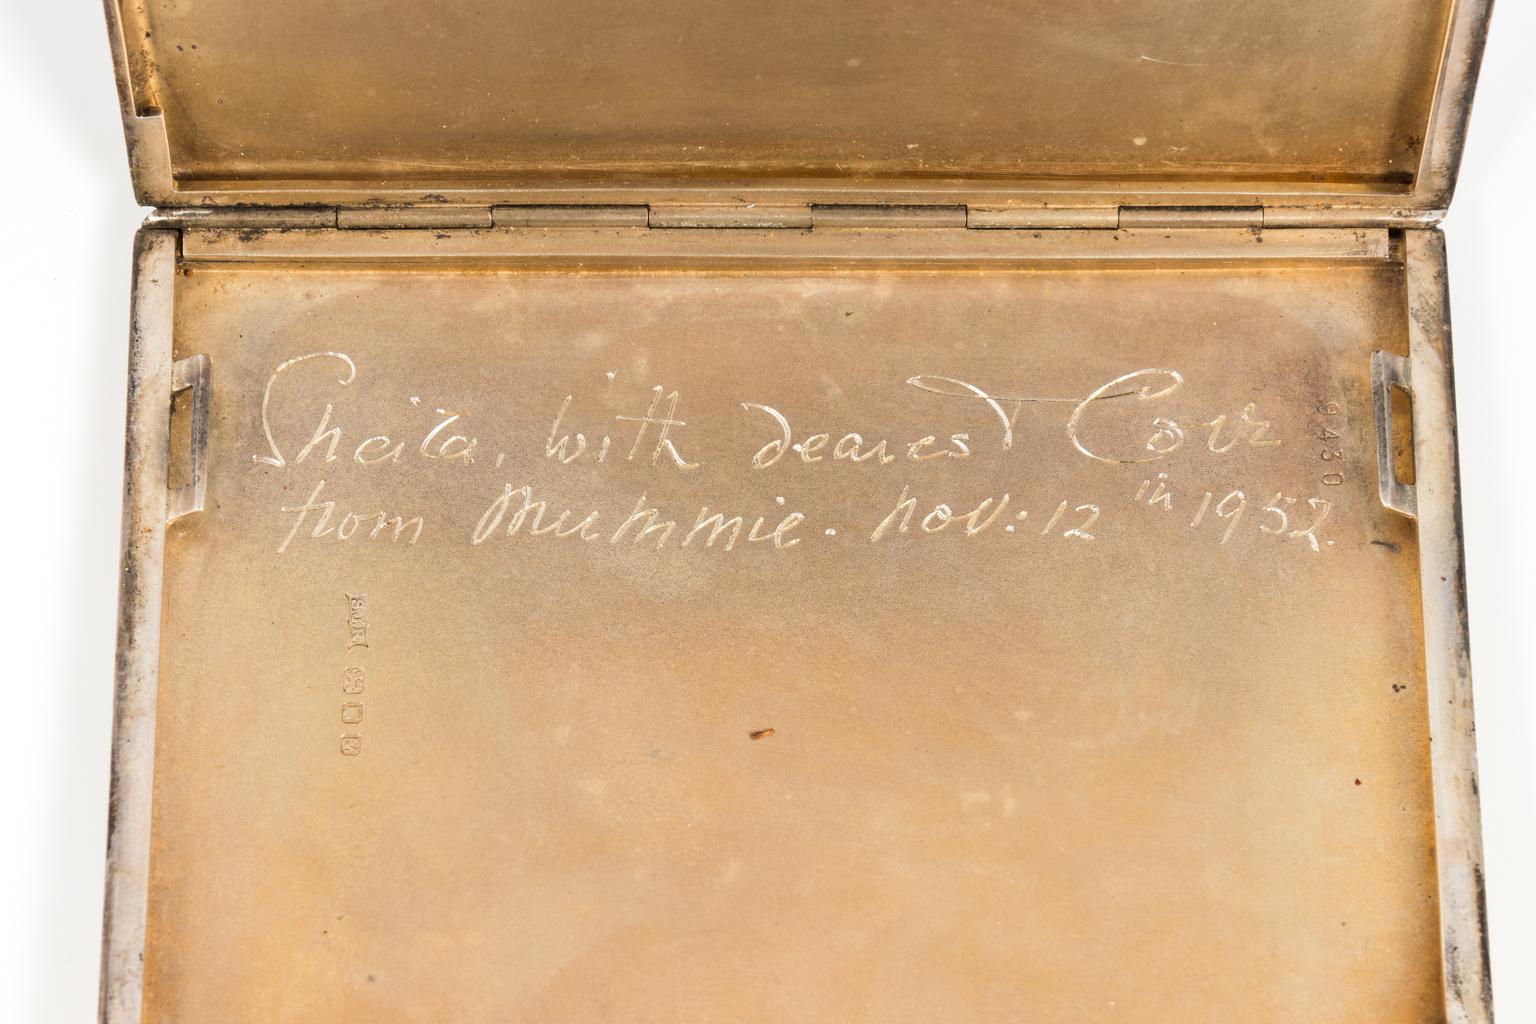 Sheila, with dearest Love
from Mummie. Nov: 12th 1952.
9430